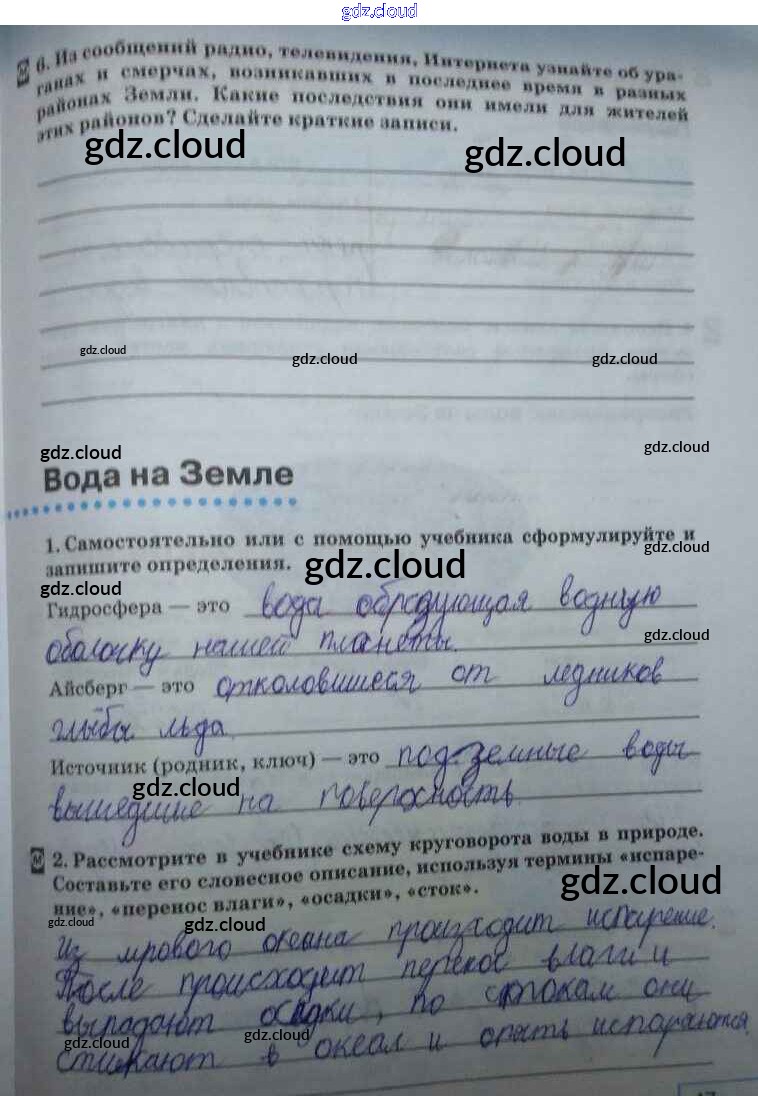 gdz.cloud
6. Из сообщений радио, телевидения, Интернета узнайте об ура-
ганах и смерчах, возникавших в последнее время в разных
районах Земли. Какие последствия они имели для жителей
этих районов? Сделайте краткие записи.
gdz.cloud
gdz.cloud
gdz.cloud
gdz.cloud
gdz.cloud
gdz.cloud
gdz.cloud
Вода на Земле
1. Самостоятельно или с помощью учебника сформулируйте и
gdz.cloud
запишите определения.
gdz.cloud
gdz.cloud
Гидросфера — это вода образующая водную
gdz.cloud
оболочку нашей планеты.
Айсберг — это отколовшиеся от ледников
глыбы льда
Источник (родник, ключ) — это подземные воды
gdz.cloud
вышедшие на поверхность
2. Рассмотрите в учебнике схему круговорота воды в природе.
Составьте его словесное описание, используя термины «испаре-
ние», «перенос влаги», «осадки», «сток».
gdz.cloud
gdz.cloud
gdz.cloud
Из мрового океана происходит испарение.
После происходит перенос влаги и
выпадают осадки, по стокам они
gdz.cloud
gdz.cloud
стикают в океан и опять испараются.